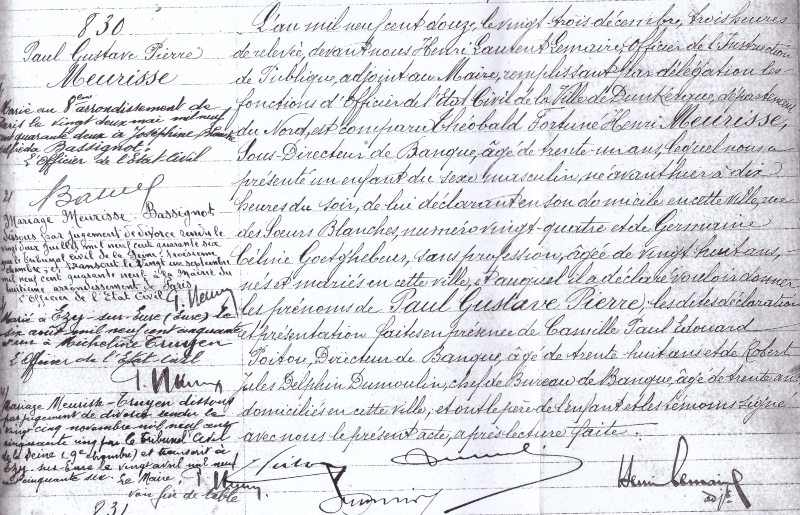 830
Paul Gustave Pierre
Meurisse
Marié au 8ème arrondissement de
Paris le vingt deux mai mil neuf
cent quarante deux à Joséphine
Alfréda Bassignot.
L'Officier de l'Etat Civil
2)
Mariage Meurisse - Bassignot
dissous par jugement de divorce rendu le
vingt deux juillet mil neuf cent quarante six
par le tribunal civil de la Seine, troisième
chambre, et transcrit le vingt un septembre
mil neuf cent quarante neuf à la Mairie du
huitième arrondissement de Paris
L'Officier de l'Etat Civil
Marié à Ezy-sur-Eure (Eure) le
six août mil neuf cent cinquante
et un à Micheline Cruyen
L'Officier de l'Etat Civil
4)
Mariage Meurisse-Cruyen dissous
par jugement de divorce rendu le
vingt cinq novembre mil neuf cent
cinquante cinq par le Tribunal Civil
de la Seine (9e chambre) et transcrit à
Ezy-sur-Eure le vingt avril mil neuf
cent cinquante six. Le Maire.
voir fin de table
831
L'an mil neuf cent douze, le vingt-trois décembre, trois heures
de relevée, devant nous Henri Laurent Lemaire, Officier de l'Instruction
de Publique, adjoint au Maire, remplissant par délégation les
fonctions d'Officier de l'Etat Civil de la Ville de Dunkerque, département
du Nord, est comparu Théobald Fortuné Henri Meurisse,
Sous-Directeur de Banque, âgé de trente-un ans, lequel nous a
présenté un enfant du sexe masculin, né avant hier à dix
heures du soir, de lui déclarant en son domicile en cette ville, rue
des Sœurs Blanches, numéro vingt-quatre et de Germaine
Céline Goetghebeur, sans profession, âgée de vingt huit ans,
nés et mariés en cette ville, et auquel il a déclaré vouloir donner
les prénoms de Paul Gustave Pierre; les dites déclaration
et présentation faites en présence de Camille Paul Edouard
Poitou, Directeur de Banque, âgé de trente huit ans et de Robert
Jules Delphin Dumoulin, chef de Bureau de Banque, âgé de trente ans
domiciliés en cette ville; et ont le père de l'enfant et les témoins signé
avec nous le présent acte, après lecture faite.
Henri Lemaire
adjt